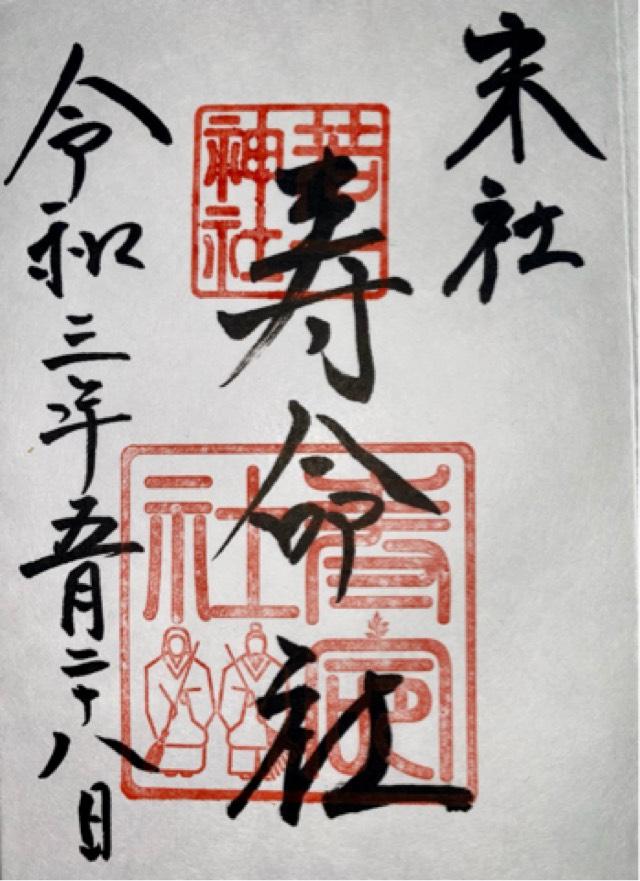 末社
寿命社
令和三年五月二十八日
若一神社
寿命社